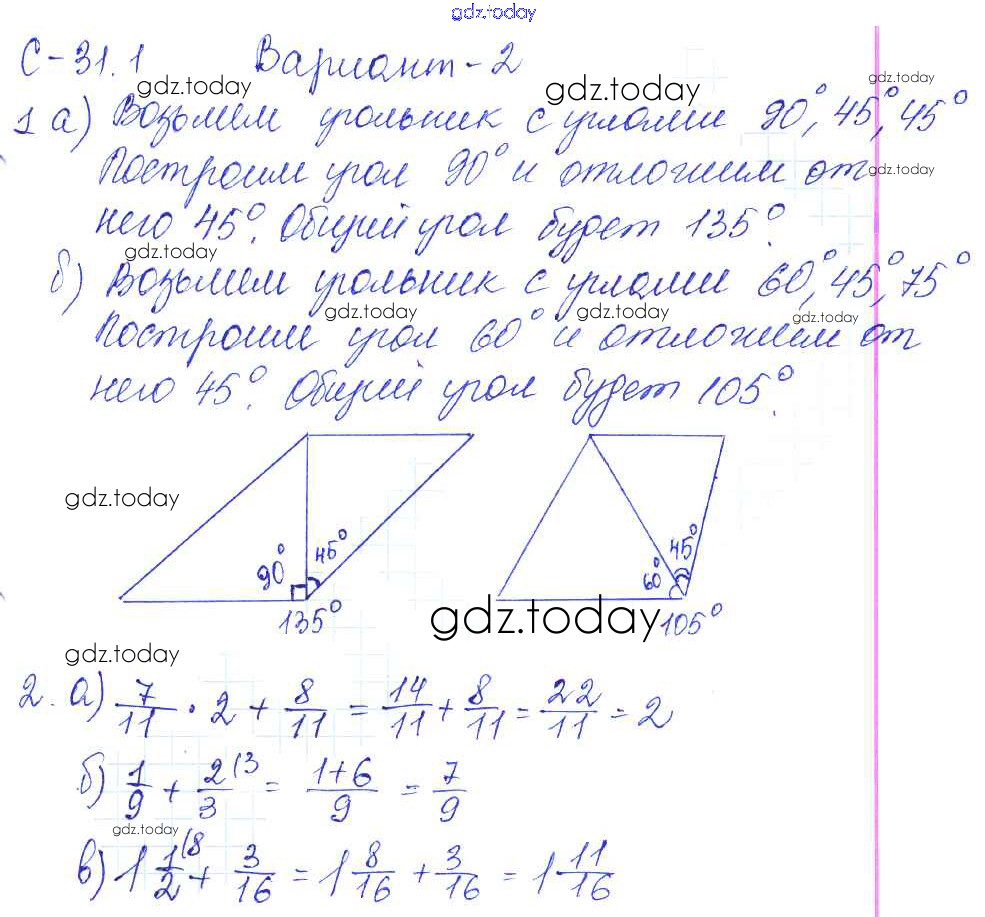 gdz.today
С-31.1 Вариант-2
gdz.today gdz.today gdz.today
1 а) Возьмем угольник с углами 90°, 45°, 45°
Построим угол 90° и отложим от
gdz.today
него 45°. Общий угол будет 135°.
gdz.today
б) Возьмем угольник с углами 60°, 45°, 75°
gdz.today gdz.today gdz.today
Построим угол 60° и отложим от
него 45°. Общий угол будет 105°.
gdz.today
90° 45° 60° 45°
135° gdz.today 105°
gdz.today
2. а) 7/11 · 2 + 8/11 = 14/11 + 8/11 = 22/11 = 2
б) 1/9 + 2(3/3 = 1+6/9 = 7/9
gdz.today
в) 1 1(8/2 + 3/16 = 1 8/16 + 3/16 = 1 11/16